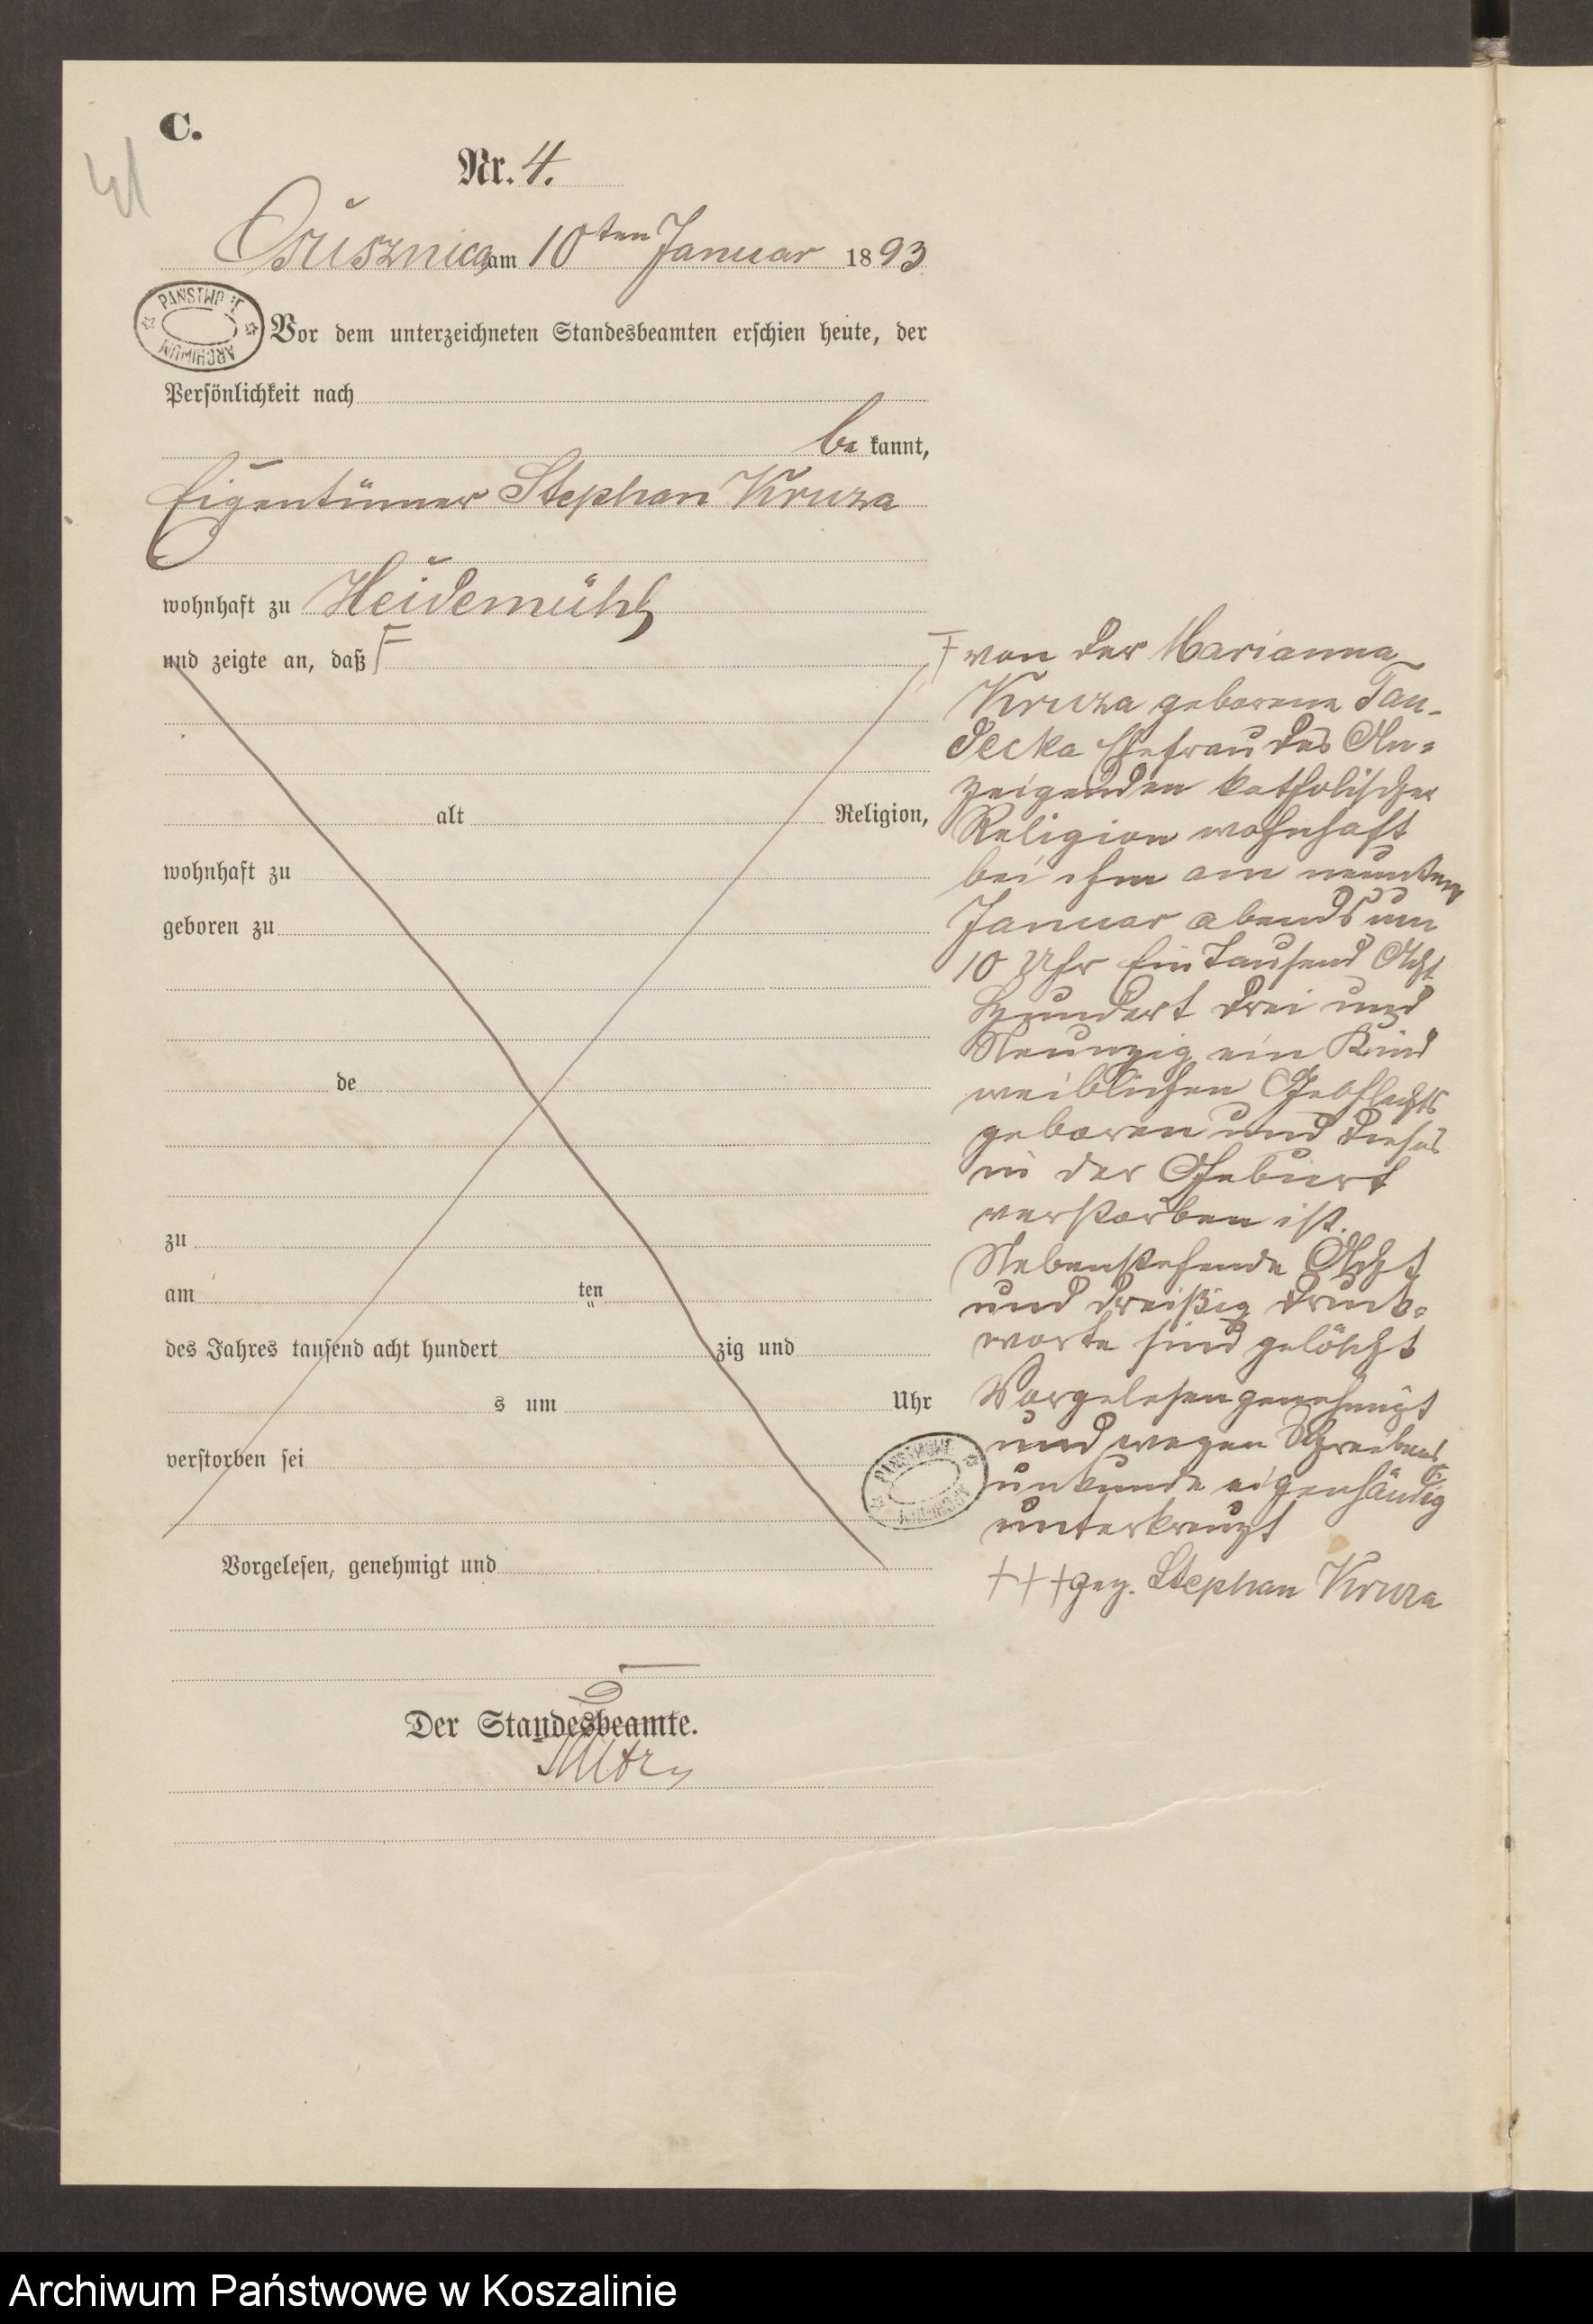 C.
41
Nr. 4.
Osusznica am 10ten Januar 1893
PAŃSTWOWE ARCHIWUM
Vor dem unterzeichneten Standesbeamten erschien heute, der
Persönlichkeit nach
be kannt,
Eigentümer Stephan Kruza
wohnhaft zu Heidemühl
und zeigte an, daß F
alt Religion,
wohnhaft zu
geboren zu
de
zu
am ten
des Jahres tausend acht hundert zig und
s um Uhr
verstorben sei
Vorgelesen, genehmigt und
Der Standesbeamte.
F von der Marianna
Kruza geborene Tan-
decka Ehefrau des An=
zeigenden katholischer
Religion wohnhaft
bei ihm am neunten
Januar abends um
10 Uhr Ein Tausend Acht
Hundert drei und
Neunzig ein Kind
weiblichen Geschlechts
geboren und dieses
in der Geburt
verstorben ist.
Nebenstehende Acht
und dreißig Druck=
worte sind gelöscht
Vorgelesen genehmigt
und wegen Schreibens
unkunde eigenhändig
unterkreuzt
+++ gez. Stephan Kruza
PAŃSTWOWE ARCHIWUM
Archiwum Państwowe w Koszalinie